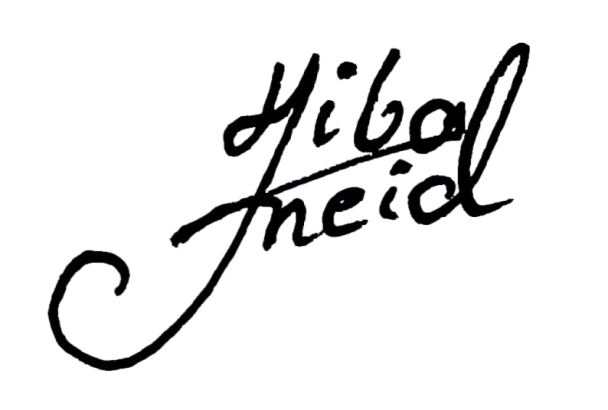 Hiba
Jneid